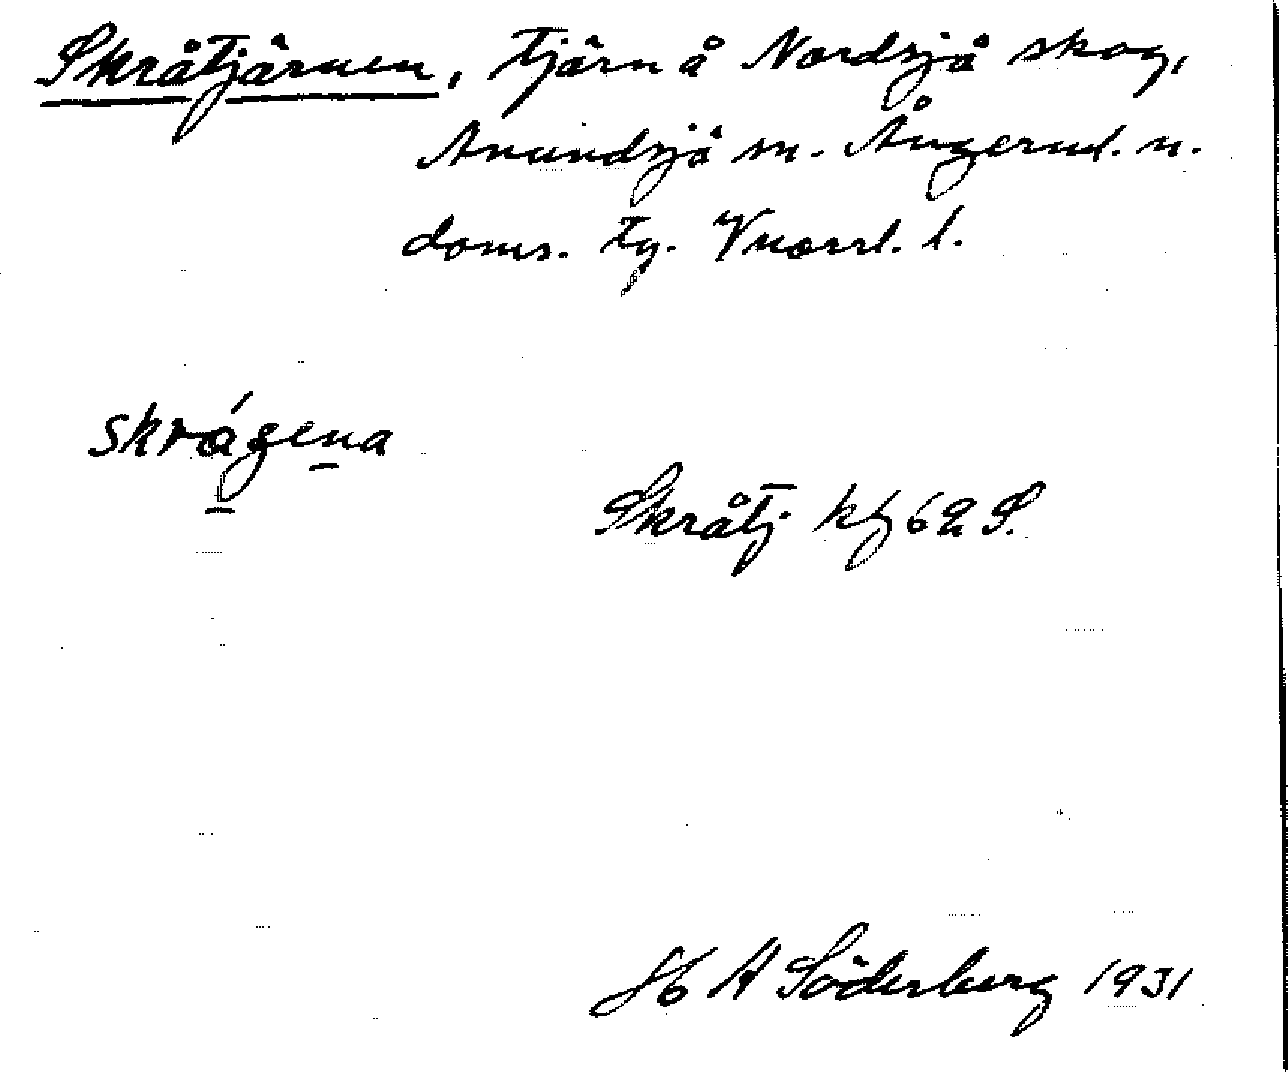 Skråtjärnen, tjärn å Nordsjö skog,
Anundsjö sn. Ångerml. n.
doms. tg. Vnorrl. l.
Skråtj. kf 62 S.
H A Söderberg 1931